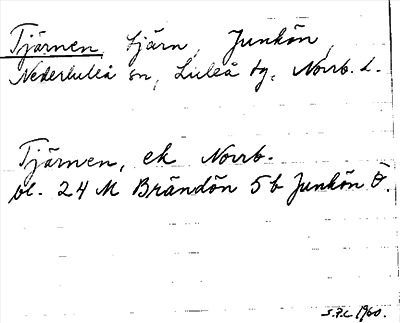 Tjärnen, tjärn, Junkön,
Nederluleå sn, Luleå tg, Norrb. l.
Tjärnen, ek Norrb.
bl. 24 M Brändön 5b Junkön Ö.
S.P.L 1960.